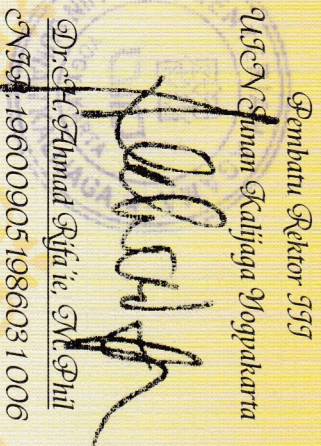 Pembatu Rektor III
UIN Sunan Kalijaga Yogyakarta
Dr. H. Ahmad Rifa'ie, M.Phil
NIP. 19600905 198603 1 006